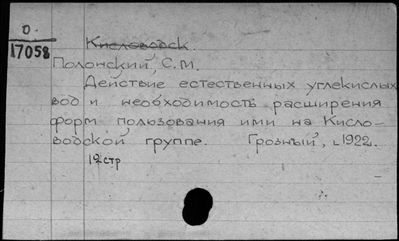 О
17058
Кисловодск.
Полонский, С.М.
Действие естественных углекислых
вод и необходимость расширения
форм пользования ими на Кисло-
водской группе. Грозный, 1922.
12 стр